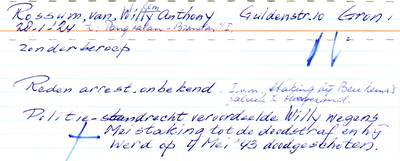 Rossum, van, Willem Anthony Guldenstr. 10 Gron.
20-1-'24 z. Pangkalan-Brandan N.I.
zonder beroep
Reden arrest. onbekend. I.v.m. staking bij Beukema's
fabriek te Hoogezand.
Politie-standrecht veroordeelde Willy wegens
Meistaking tot de doodstraf en hij
werd op 7 Mei '43 doodgeschoten.